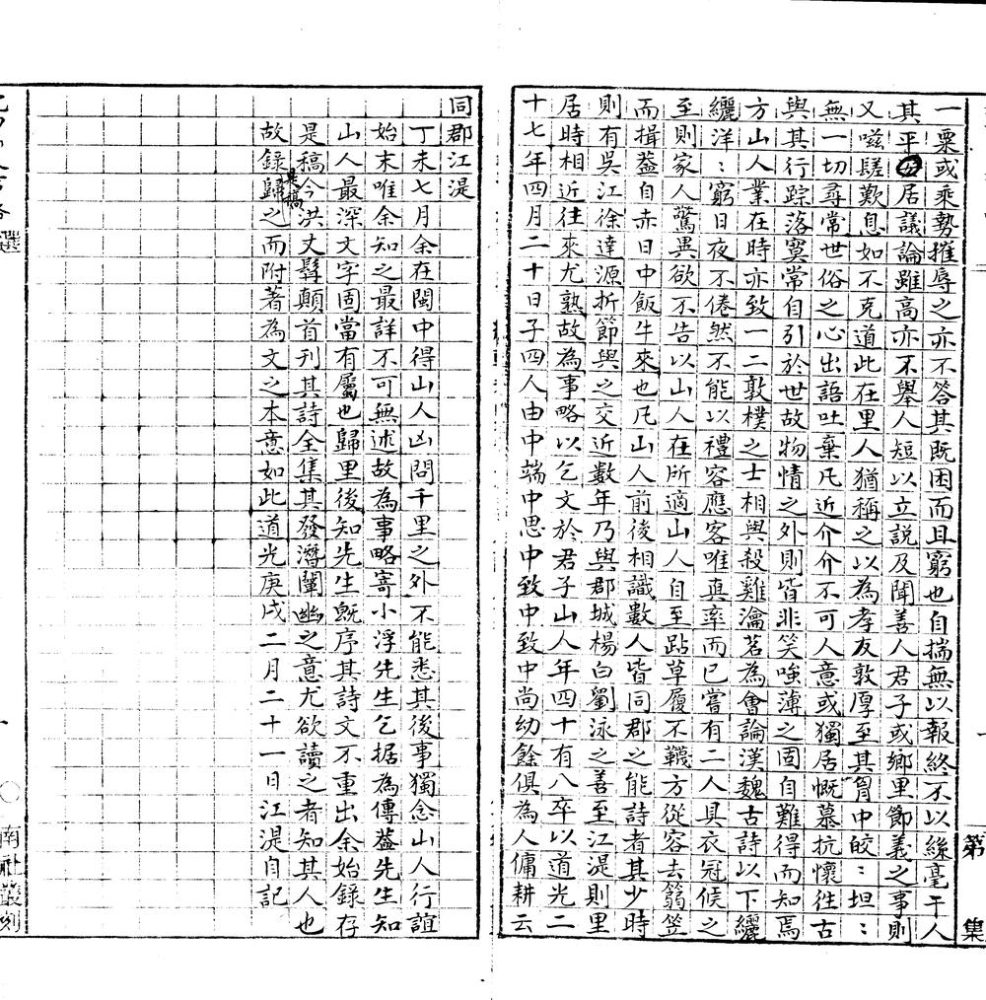 一粟或乘勢摧辱之亦不答其既困而且窮也自揣無以報終不以絲毫干人
其平居議論雖高亦不舉人短以立說及聞善人君子或鄉里節義之事則
又嗞嗟歎息如不克道此在里人猶稱之以為孝友敦厚至其胷中皎:坦:
無一切尋常世俗之心出語吐棄凡近介介不可人意或獨居慨慕抗懷往古
與其行踪落寞常自引於世故物情之外則皆非笑嗤薄之固自難得而知焉
方山人業在時亦致一二敦樸之士相與殺雞瀹茗為會論漢魏古詩以下纚
纚洋:窮日夜不倦然不能以禮容應客唯真率而已嘗有二人具衣冠候之
至則家人驚異欲不告以山人在所適山人自至跕草履不韈方從容去篛笠
而揖葢自赤日中飯牛來也凡山人前後相識數人皆同郡之能詩者其少時
則有吳江徐達源折節與之交近數年乃與郡城楊白劉泳之善至江湜則里
居時相近往來尤熟故為事略以乞文於君子山人年四十有八卒以道光二
十七年四月二十日子四人由中端中思中致中致中尚幼餘俱為人傭耕云
第 集
同郡江湜
丁未七月余在閩中得山人凶問千里之外不能悉其後事獨念山人行誼
始末唯余知之最詳不可無述故為事略寄小浮先生乞据為傳葢先生知
山人最深文字固當有屬也歸里後知先生既序其詩文不重出余始錄存
是稿今洪文髯顛首刊其詩全集其發潛闡幽之意尤欲讀之者知其人也
故錄是稿歸之而附著為文之本意如此道光庚戌二月二十一日江湜自記
選
南社叢刻